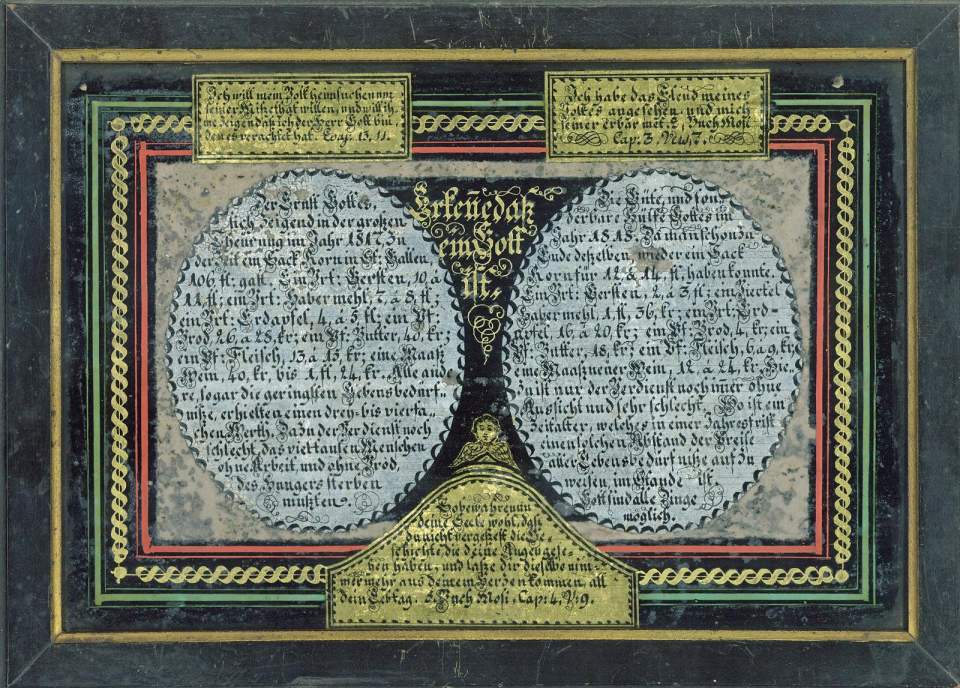 Ich will mein Volk heimsuchen um
seiner Mißethat willen, und will ih
me Zeigen daß ich der Herr Gott bin
den es verachtet hat. Esaj. 13, 11.
Ich habe das Elend meines
Volkes angesehen, und mich
seiner erbarmet. 2, Buch Mosi
Cap: 3. V. 7.
Erkeñe daß
ein Gott
ist.
Der Ernst Gottes,
sich zeigend in der großen
Theurung im Jahr 1817. Zu
der Zeit ein Sack Korn in St: Gallen
106 fl: galt. Ein Vrt: Gersten, 10 a
11 fl; ein Vrt: Habermehl, 7, a 8, fl;
ein Vrt: Erdäpfel, 4 a 5 fl; ein Pf:
Brod, 26, a 28, kr; ein Pf: Butter, 40, kr;
ein Pf: Fleisch, 13, a 15, kr; eine Maaß
Wein, 40, kr. bis 1, fl, 24, kr. Alle ande
re, sogar die geringsten Lebensbedürf
niße, erhielten einen drey- bis vierfa
chen Werth. Dazu der Verdienst noch
schlecht, das viel tausen Menschen
ohne Arbeit, und ohne Brod
des Hungers sterben
mußten.
Die Güte, und son
derbare Hülfe Gottes im
Jahr 1818. Da man schon zu
Ende deßelben, wieder ein Sack
Korn für 12 & 14 fl; haben konnte.
Ein Vrt: Gersten, 2, a 3, fl; ein Viertel
Habermehl, 1 fl, 36, kr; ein Vrt: Erd-
äpfel, 16 a 20, kr; ein Pf: Brod, 4, kr; ein
Pf: Butter, 18, kr; ein Pf: Fleisch, 6, a 9, kr;
eine Maaß neuen Wein, 12, a 24, kr.
zu ist nur der Verdienst noch im̃er ohne
Aussicht und sehr schlecht. Wo ist ein
Zeitalter, welches in einer Jahresfrist
einen solchen Abstand der Preise
aller Lebensbedürfniße auf zu
weisen, im Stande ist.
Gott sind alle Dinge
möglich.
So bewahre nun
deine Seele wohl, daß
du nicht vergeßest die Ge-
schichte, die deine Augen gese-
hen haben, und laße dir dieselbe nim-
mermehr aus deinem Herzen kommen, all
dein Lebtag. 5. Buch Mosi. Cap: 4, V: 9.